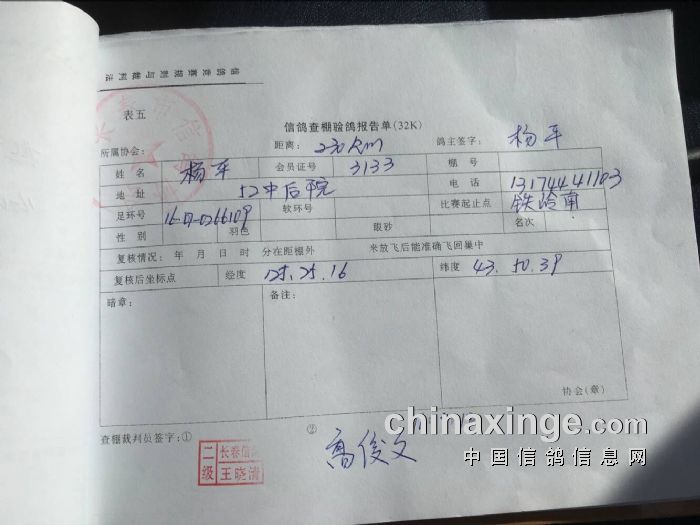 信鸽竞赛规则与裁判法
表五
信鸽查棚验鸽报告单(32K)
所属协会: 距离: 230Km 鸽主签字: 杨平
姓名 杨平 会员证号 3133 棚号
地址 52中后院 电话 13174441103
足环号 16-07-0266109 软环号 比赛起止点 铁岭南
性别 羽色 眼砂 名次
复核情况: 年 月 日 时 分在距棚外 米放飞后能准确飞回巢中
复核后坐标点 经度 125.25.16 纬度 43.50.39
暗章: 备注:
协会(章)
查棚裁判员签字:① ② 高俊文
二级 长春信 王晓清
chinaxinge.com
中国信鸽信息网